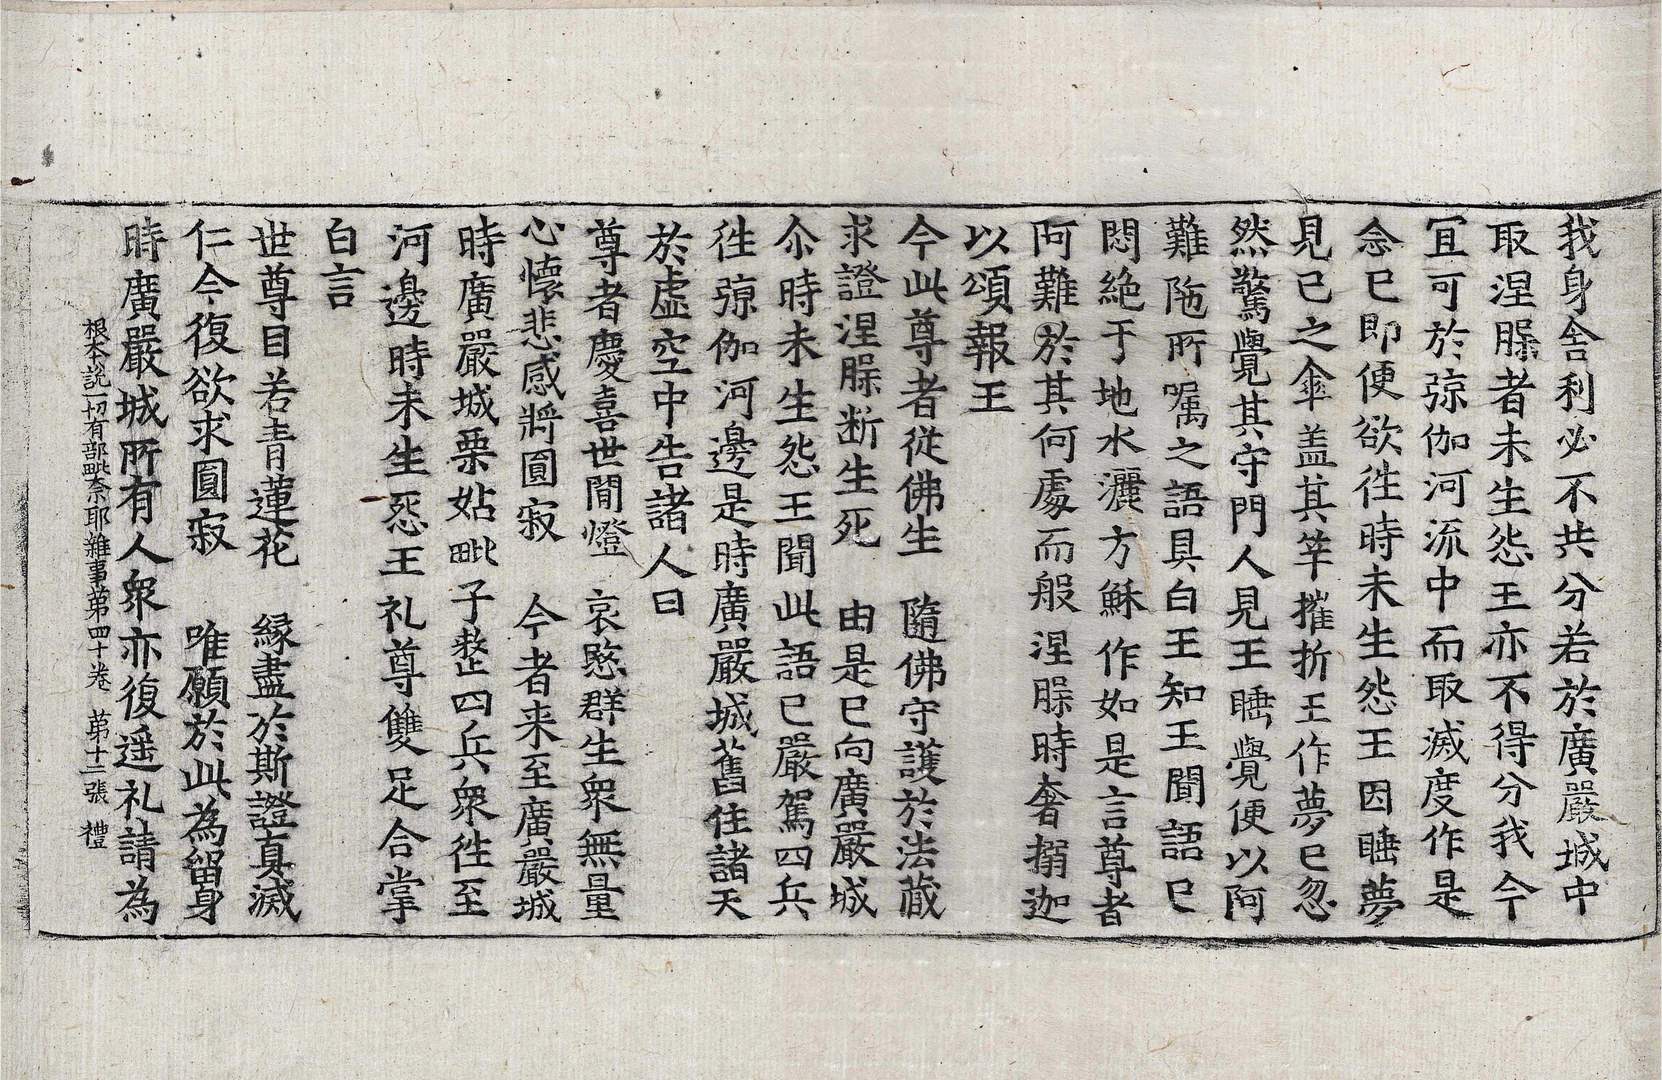 我身舍利必不共分若於廣嚴城中
取涅槃者未生怨王亦不得分我今
宜可於弶伽河流中而取滅度作是
念已即便欲往時未生怨王因睡夢
見己之傘盖其竿摧折王作夢已忽
然驚覺其守門人見王睡覺便以阿
難陁所囑之語具白王知王聞語已
悶絶于地水灑方穌作如是言尊者
阿難於其何處而般涅槃時奢搦迦
以頌報王
今此尊者從佛生　隨佛守護於法藏
求證涅槃断生死　由是已向廣嚴城
尒時未生怨王聞此語已嚴駕四兵
往弶伽河邊是時廣嚴城舊住諸天
於虛空中告諸人曰
尊者慶喜世間燈　哀愍群生衆無量
心懷悲感將圓寂　今者来至廣嚴城
時廣嚴城栗姑毗子整四兵衆往至
河邊時未生怨王礼尊雙足合掌
白言
世尊目若青蓮花　縁盡於斯證真滅
仁今復欲求圓寂　唯願於此為留身
時廣嚴城所有人衆亦復遥礼請為
根本說一切有部毗奈耶雜事苐四十卷　苐十二張　禮